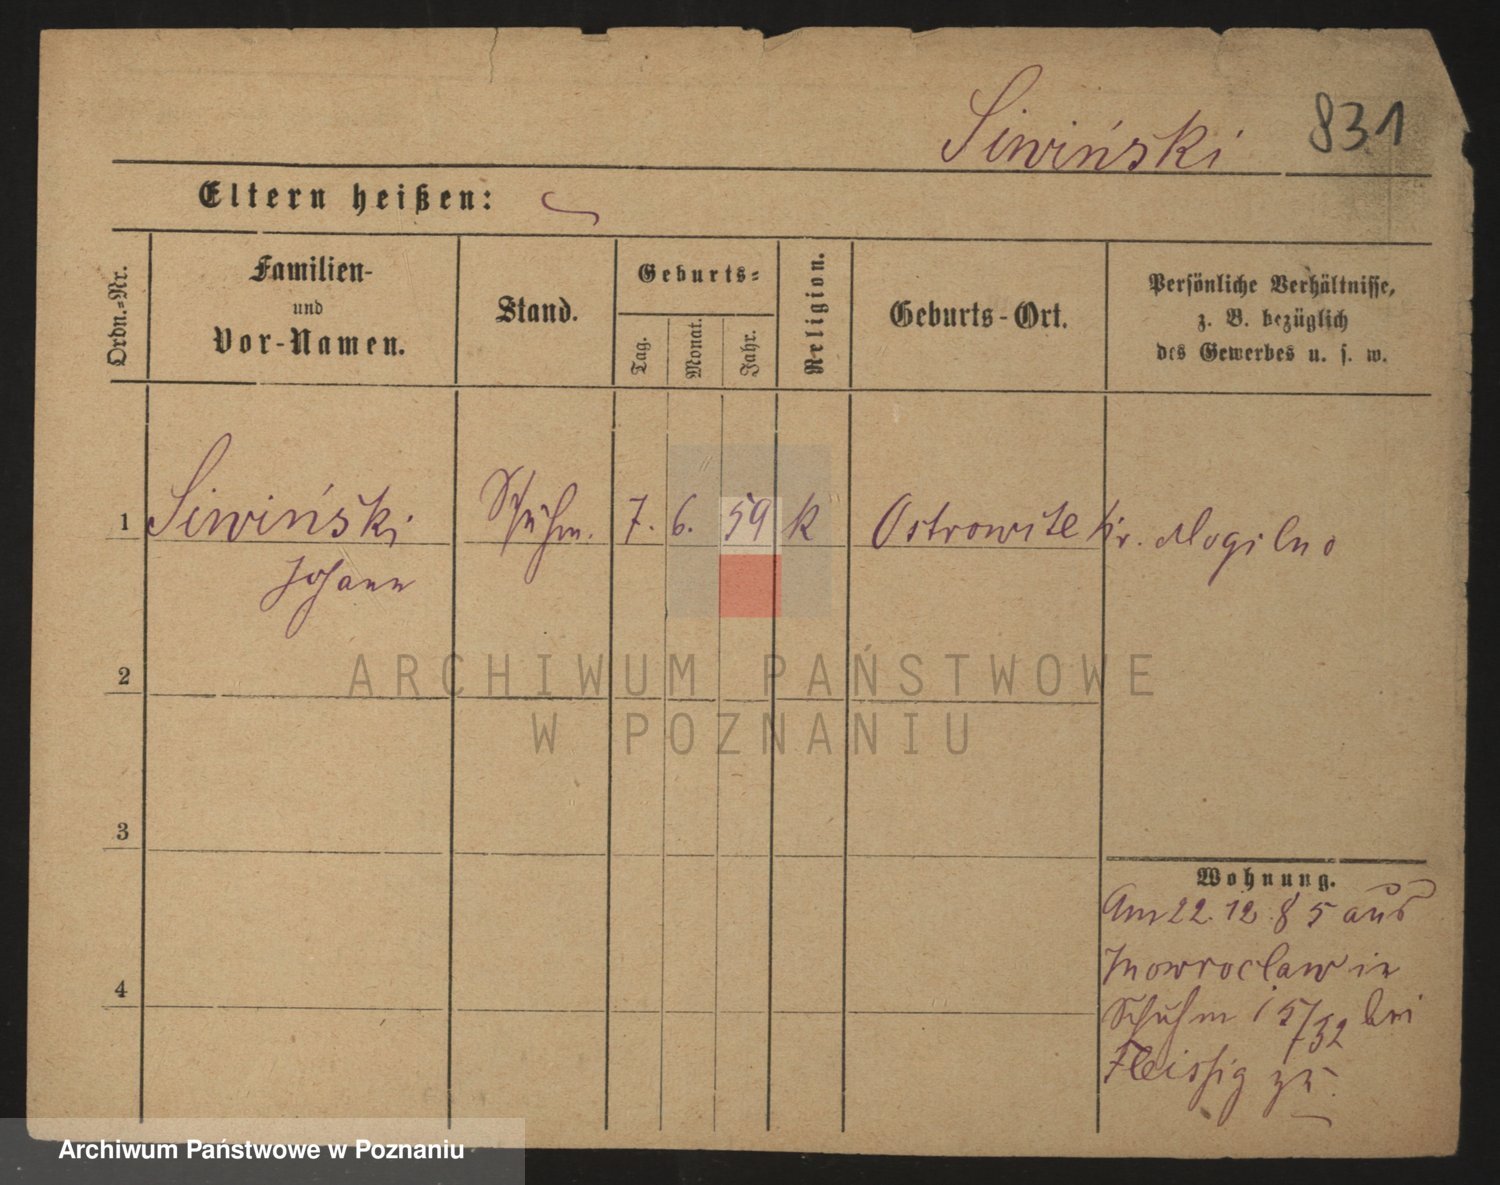 Siwiński 831
Eltern heißen:
Ordn.-Nr.
Familien-
und
Vor-Namen.
Stand.
Geburts-
Tag.
Monat.
Jahr.
Religion.
Geburts-Ort.
Persönliche Verhältnisse,
z. B. bezüglich
des Gewerbes u. s. w.
1 Siwiński Schuhm. 7. 6. 59 k Ostrowite Kr. Mogilno
Johann
2
ARCHIWUM PAŃSTWOWE
W POZNANIU
3
Wohnung.
Am 22. 12. 85 aus
Inowroclaw in
4
Schuhm 15/32 bei
Fleissig zu.
Archiwum Państwowe w Poznaniu